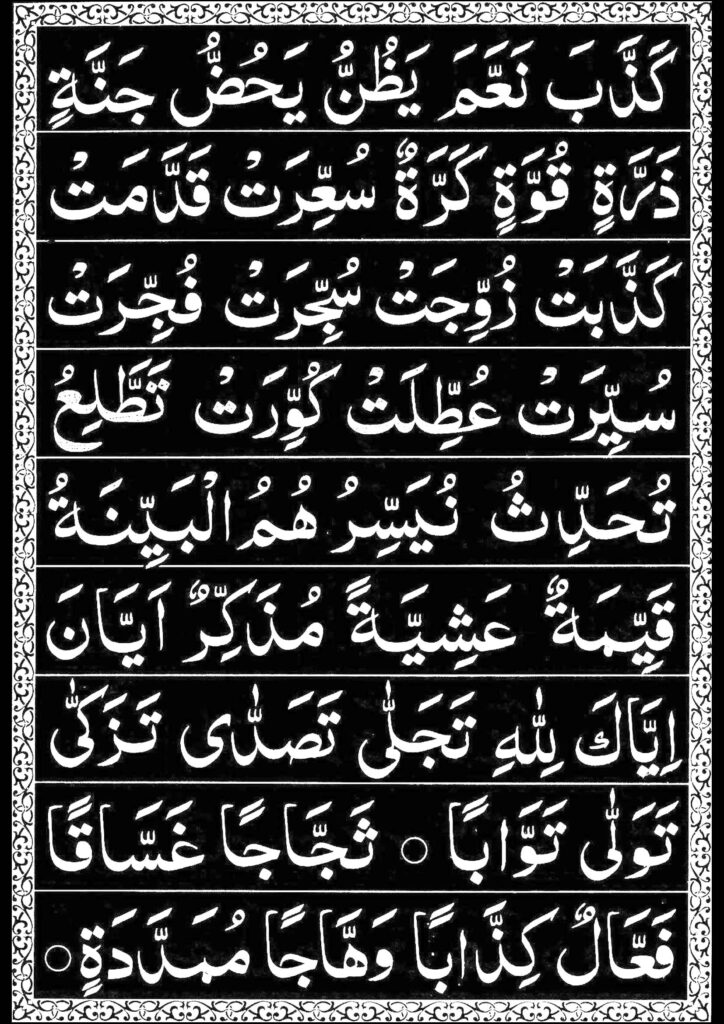 كَذَّبَ نَعَّمَ يَظُنُّ يَحُضُّ جَنَّةٍ
ذَرَّةٍ قُوَّةٍ كَرَّةٌ سُعِّرَتْ قَدَّمَتْ
كَذَّبَتْ زُوِّجَتْ سُجِّرَتْ فُجِّرَتْ
سُيِّرَتْ عُطِّلَتْ كُوِّرَتْ تَطَّلِعُ
تُحَدِّثُ نُيَسِّرُ هُمُ الْبَيِّنَةُ
قَيِّمَةٌ عَشِيَّةً مُذَكِّرٌ اَيَّانَ
اِيَّاكَ لِلّٰهِ تَجَلّٰى تَصَدّٰى تَزَكّٰى
تَوَلّٰى تَوَّابًا ○ ثَجَّاجًا غَسَّاقًا
فَعَّالٌ كِذَّابًا وَهَّاجًا مُمَدَّدَةٍ ○